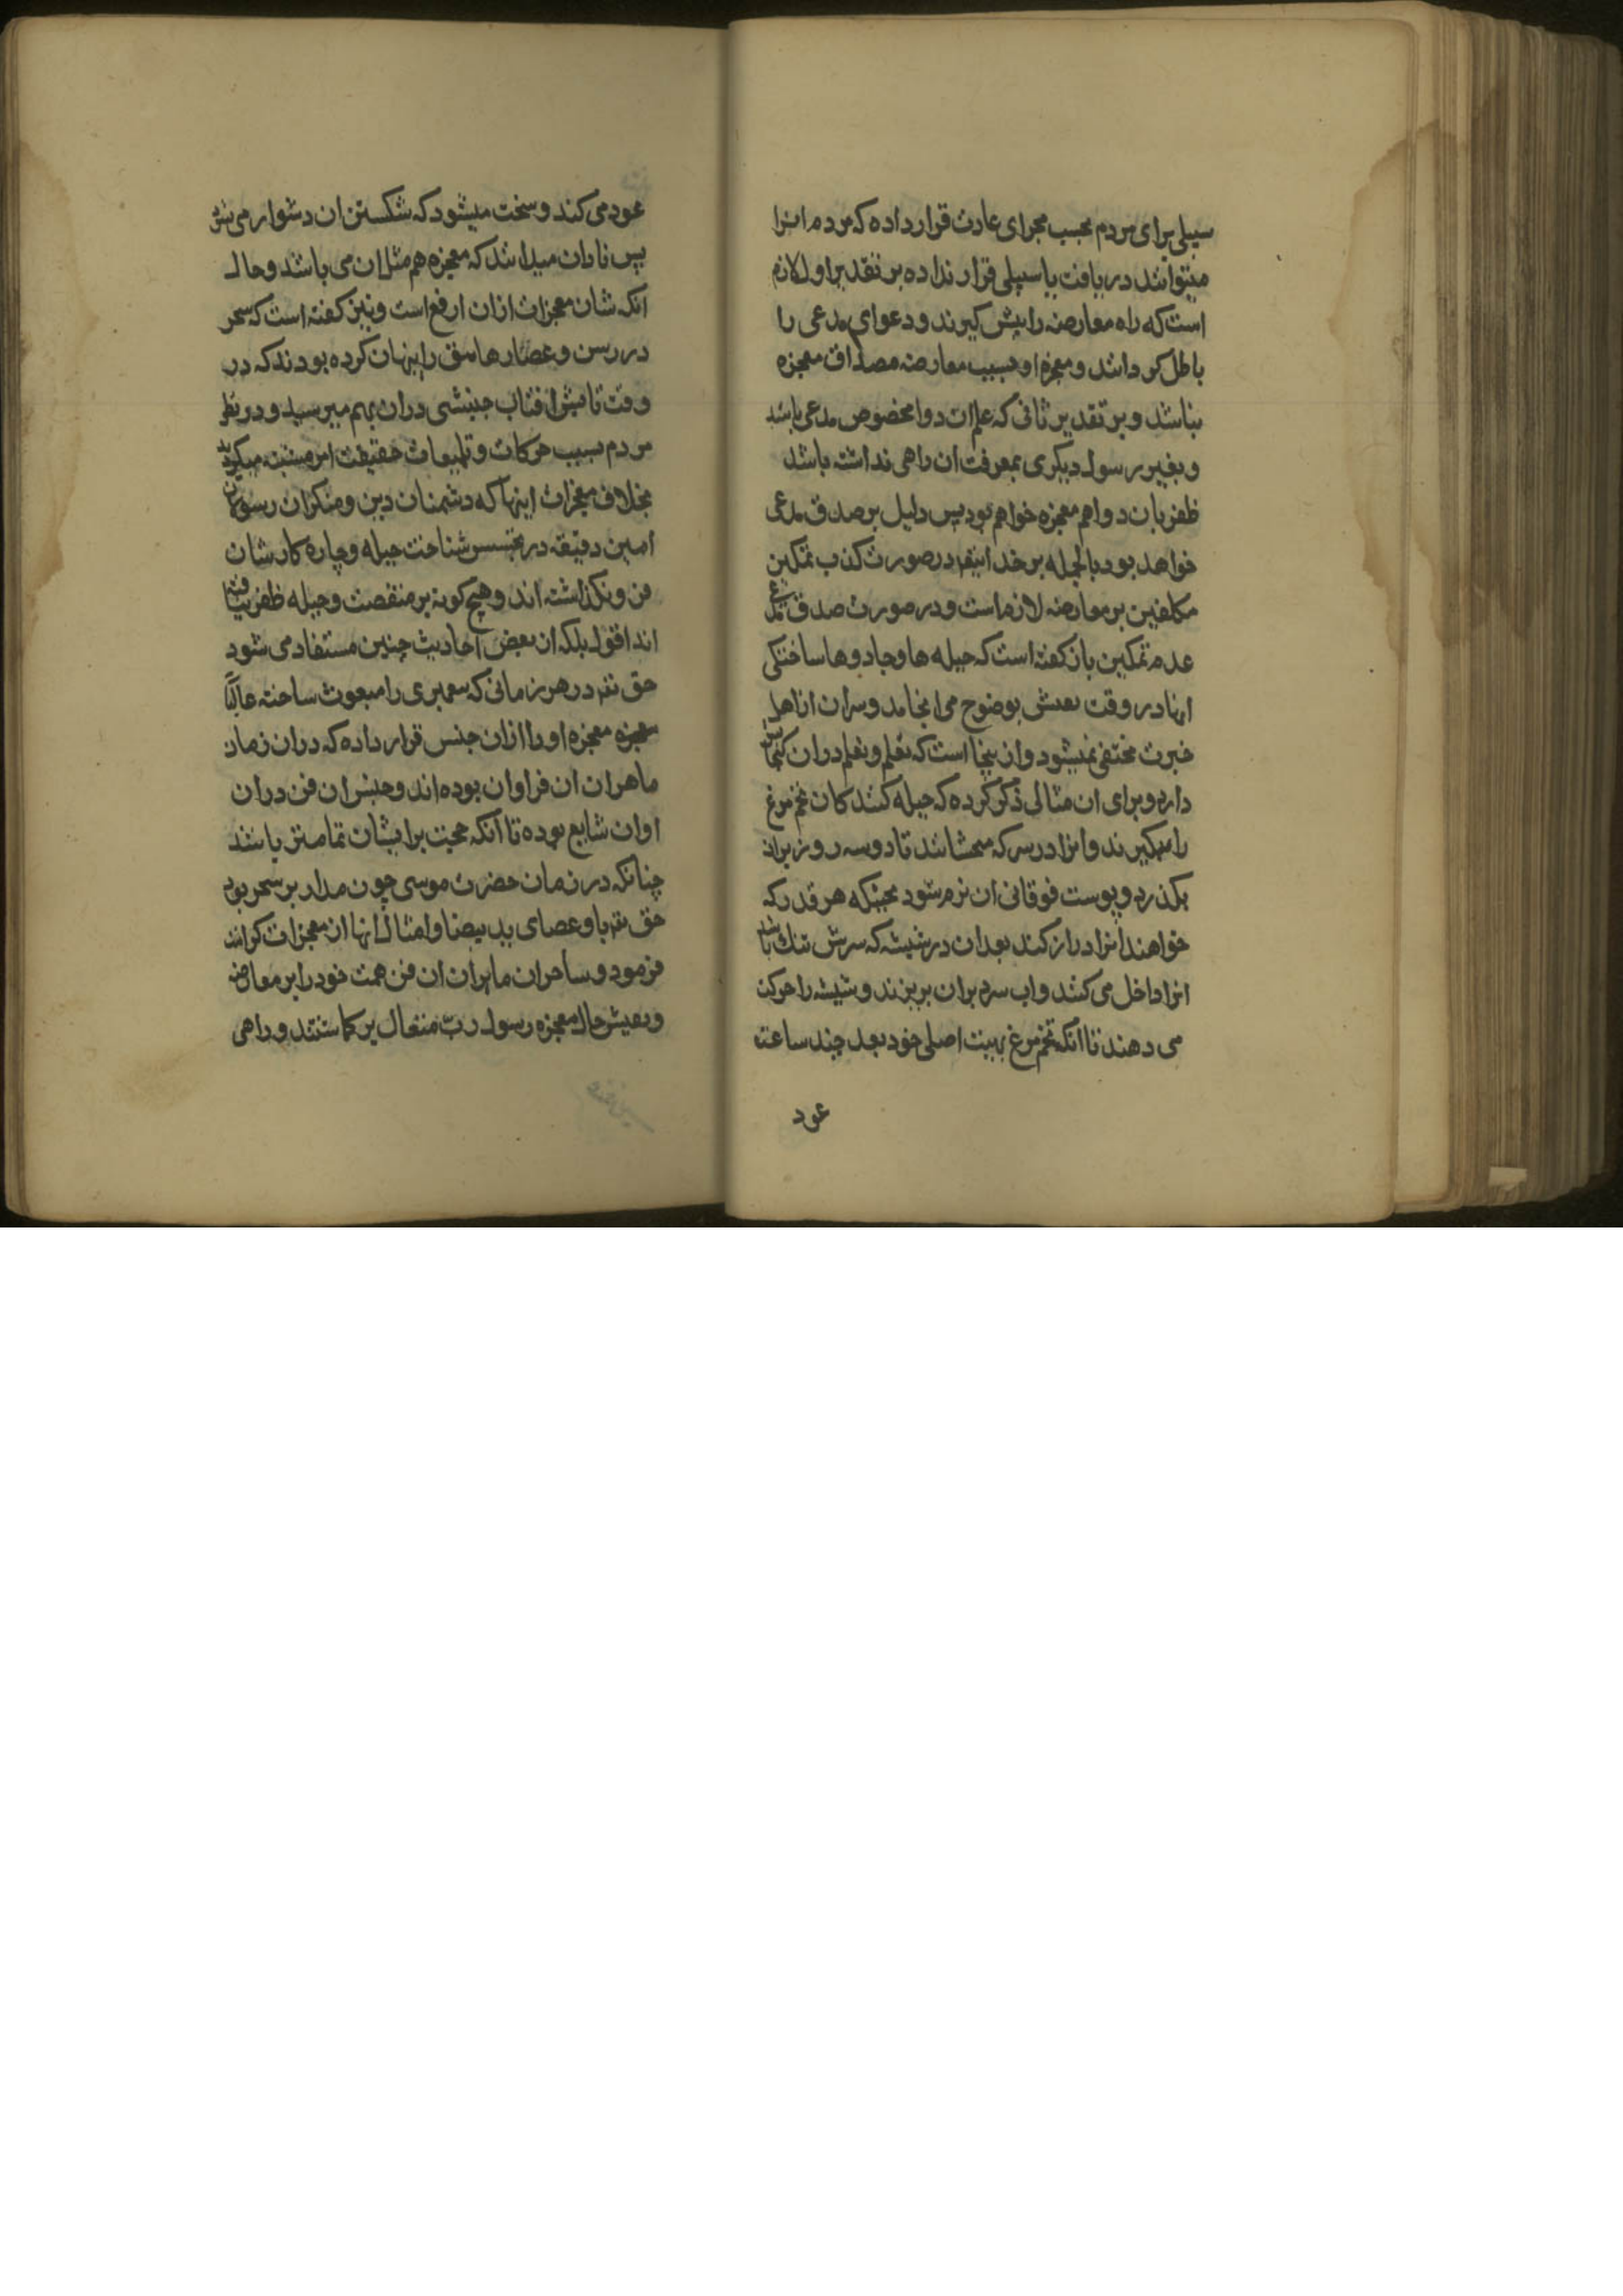 سبیلی برای مردم بحسب مجرای عادت قرار داده که مردم انرا
میتوانند دریافت یا سبیلی قرار نداده بر تقدیر اول لازم
است که راه معارضه را پیش گیرند و دعوای مدعی را
باطل گردانند و معجزه او بسبب معارضه مصداق معجزه
نباشد و بر تقدیر ثانی که علم ان دوا مخصوص مدعی باشد
و بغیر رسول دیگری بمعرفت ان راهی نداشته باشد
ظفر بان دوا هم معجزه خواهم بود پس دلیل بر صدق مدعی
خواهد بود بالجمله بر خدایتعم در صورت کذب تمکین
مکلفین بر معارضه لازم است و در صورت صدق مدعی
عدم تمکین باز کفته است که حیله ها و جادوها ساختکی
انها در وقت تفتیش بوضوح می انجامد و سران از اهل
خبرت مختفی نمیشود و از ینجا است که تعلم و تعلیم دران
دارد و برای ان مثالی ذکر کرده که حیله کنندکان تخم مرغ
را میکیرند و انرا در سرکه میخشانند تا دو سه روز بران
بکذرد و پوست فوقانی ان نرم شود بحیثیکه هر قدر که
خواهند انرا دراز کنند بعد ان در شیشه که سرش تنک باشد
انرا داخل می کنند و اب سرد بران بریزند و شیشه را حرکت
می دهند تا انکه تخم مرغ بهیئت اصلی خود بعد چند ساعت
عود
عود می کند و سخت میشود که شکستن ان دشوار می شود
پس نادان میداند که معجزه هم مثل ان می باشد و حال
انکه شان معجزات ازان ارفع است و نیز کفته است که سحر
در رسن و عصارها بق را پنهان کرده بودند که در
وقت تابش افتاب جنبشی دران بهم میرسید و در نظر
مردم بسبب حرکات و تلمیعات حقیقت امر مشتبه میکردید
بخلاف معجزات اینها که دشمنان دین و منکران رسولان
امین دقیقه در تجسس شناخت حیله و چاره کارشان
فرو نکذاشته اند و هیچ کونه بر منقصت و حیله ظفر نیافته
اند اقول بلکه از بعض احادیث چنین مستفاد می شود
حق تعم در هر زمانی که پیغمبری را مبعوث ساخته غالبًا
معجزه معجزه او را ازان جنس قرار داده که دران زمان
ماهران ان فراوان بوده اند و جنس ان فن دران
اوان شایع بوده تا انکه حجت بر ایشان تمامتر باشد
چنانکه در زمان حضرت موسی چون مدار بر سحر بود
حق تعم باو عصای ید بیضا و امثال انها از معجزات کرامت
فرمود و ساحران ماهران ان فن همت خود را بر معارضه
و تفتیش حال معجزه رسول ربّ متعال بر کماشتند و راهی